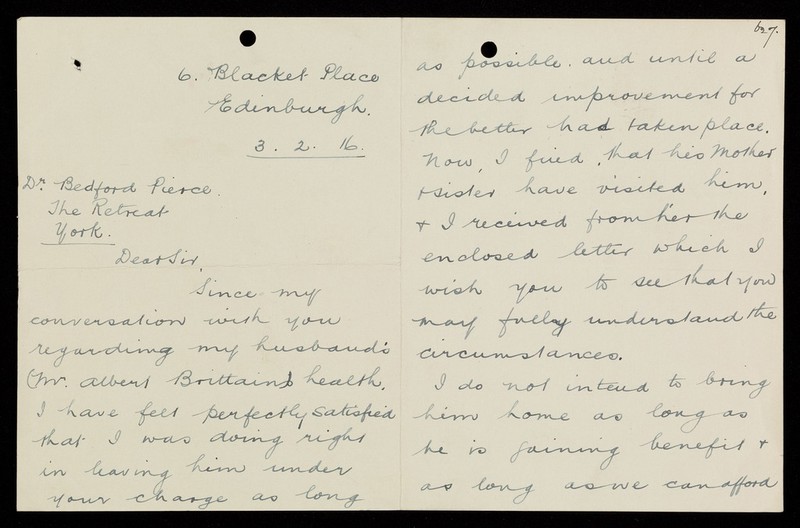 6. Blacket Place
Edinburgh.
3. 2. 16.
Dr. Bedford Pierce.
The Retreat
York.
Dear Sir,
Since my
conversation with you
regarding my husband's
(Mr. Albert Brittain's) health,
I have felt perfectly satisfied
that I was doing right
in leaving him under
your charge as long
627.
as possible. and until a
decided improvement for
the better had taken place.
Now, I find, that his Mother
& sister have visited him,
& I received from her the
enclosed letter which I
wish you to see that you
may fully understand the
circumstances.
I do not intend to bring
him home as long as
he is gaining benefit &
as long as we can afford